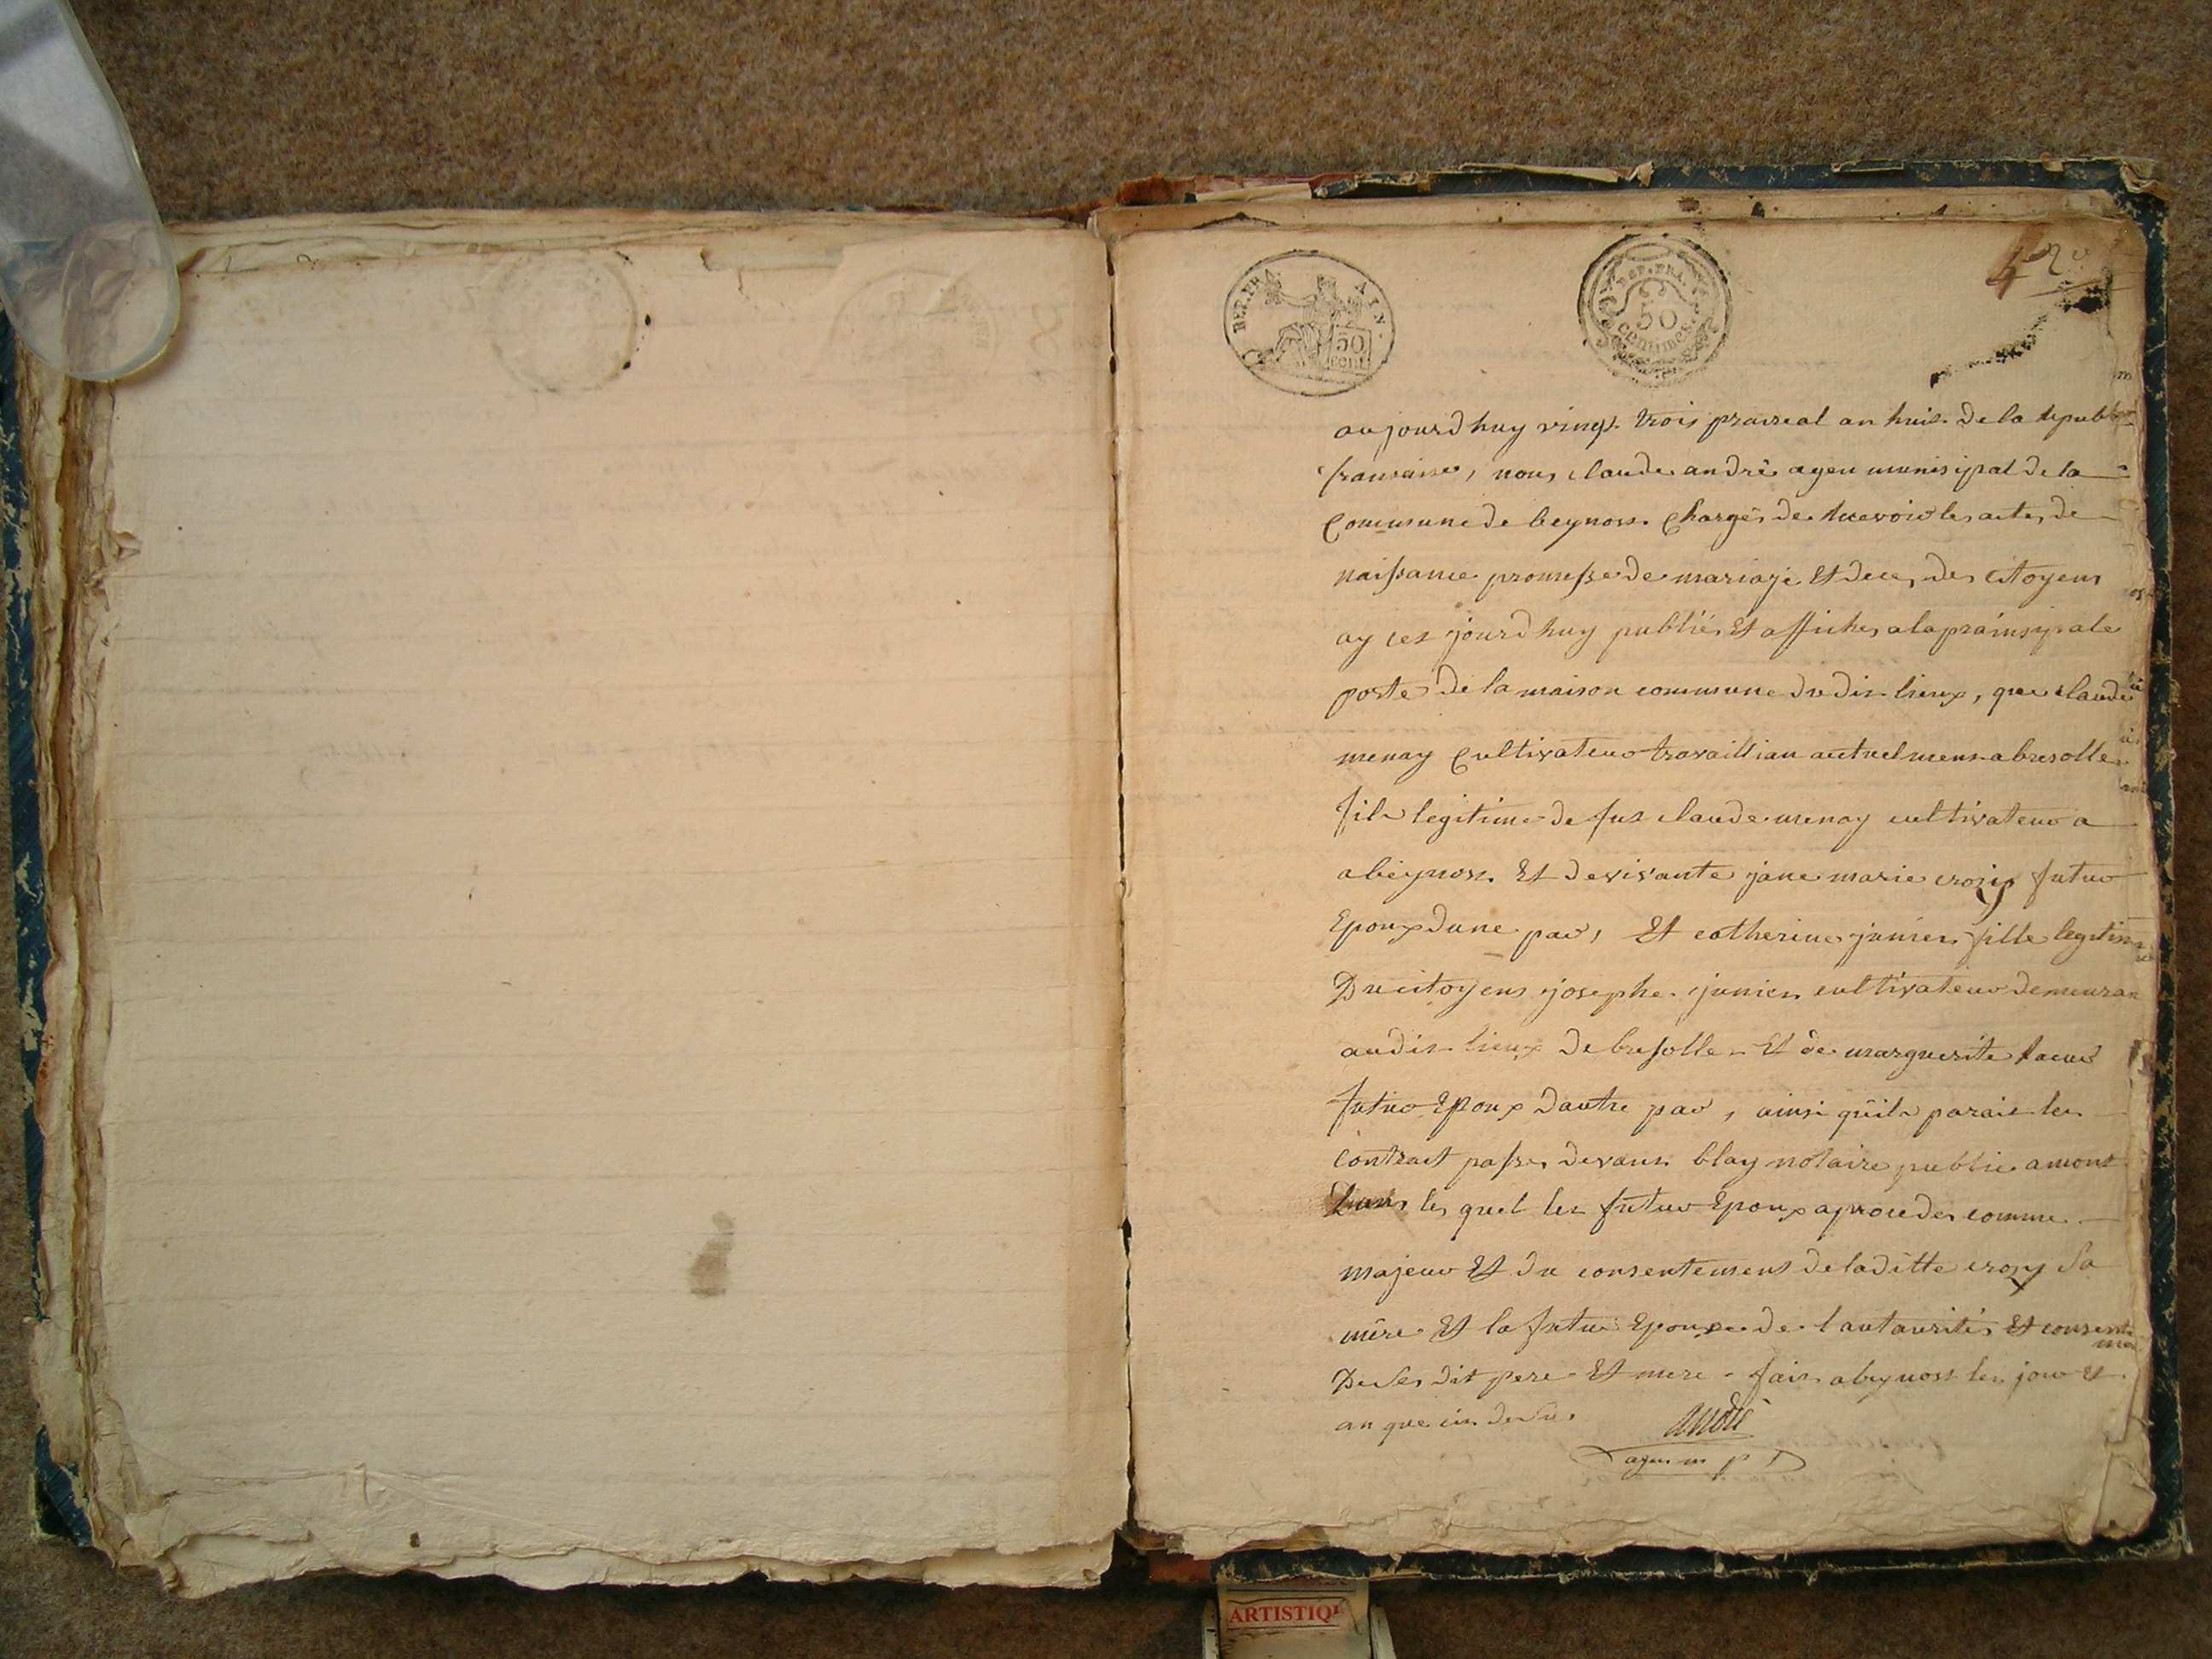 REP. FRA. AIN.
50
cent
REP. FRA.
50
centimes.
4
aujourdhuy vingt trois prareal an huit de la republi
fransaise, nous claude andrè agen munisipal de la
Commune de beynost Chargés de recevoir les actes de
naissance promesse de mariaje Et deces des Citoyens
ay cet jourdhuy publiés Et affiches a la prainsipale
porte de la maison commune dudit lieux, que claude
menay Cultivateur travaillian actuelment a bresolle
fils legitime de fut claude menay cultivateur a
abeynost Et de vivante jane marie crozy futur
Epoux dune par, Et catherine junier fille legitim
Du citoyens josephe junier cultivateur demeuran
audit lieux de bresolle Et de marguerite
futur Epoux dautre par, ainsi quil parait les
Contract passer devant blay notaire public a mont
luel les quel les futur Epoux a proceder comme
majeur Et du consentement de laditte crozy Sa
mère Et la futur Epouse de lautaurités Et consente
ment
De Ses dit pere Et mere fait a beynost les jour et
an que cit desus
andrè
agen m p l
ARTISTIQ